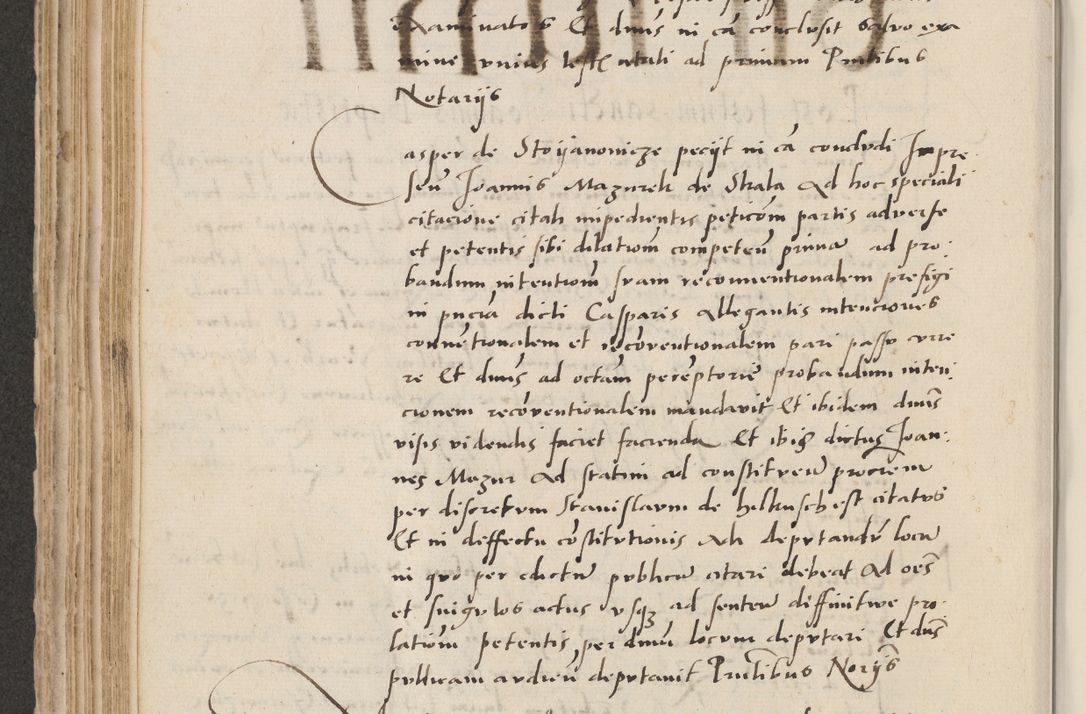 examinatos Et dnus in ca conclusit Salvo exa
mine unius testis citati ad primam Pntibus
Notarijs
Casper de Stoijanowicze pecijt in ca concludi In pre
sen Joannis Mazurek de Skala Ad hoc speciali
citacione citati impedientis peticom partis adverse
et petentis sibi dilatiom competen prima ad pro
bandum intentiom suam reconventionalem prefigi
in pncia dicti Casparis Allegantis intenciones
conventionalem et reconventionalem pari passu curre
re Et dnus ad octam peremptorie probandum inten
cionem reconventionalem mandavit Et ibidem dnus
visis videndis faciet facienda Et ibiq dictus Joan
nes Mazur Ad statim ad constituen procrem
per discretum Stanislaum de hilkusch est citatus
Et in deffectu constitutionis Ad deputandu loca
in quo per edictu publicu citari debeat Ad oes
et singulos actus usq ad senten diffinitive pro
latiom petentis per dnm locum deputari Et dns
publicam audien deputavit Pntibus Norijs